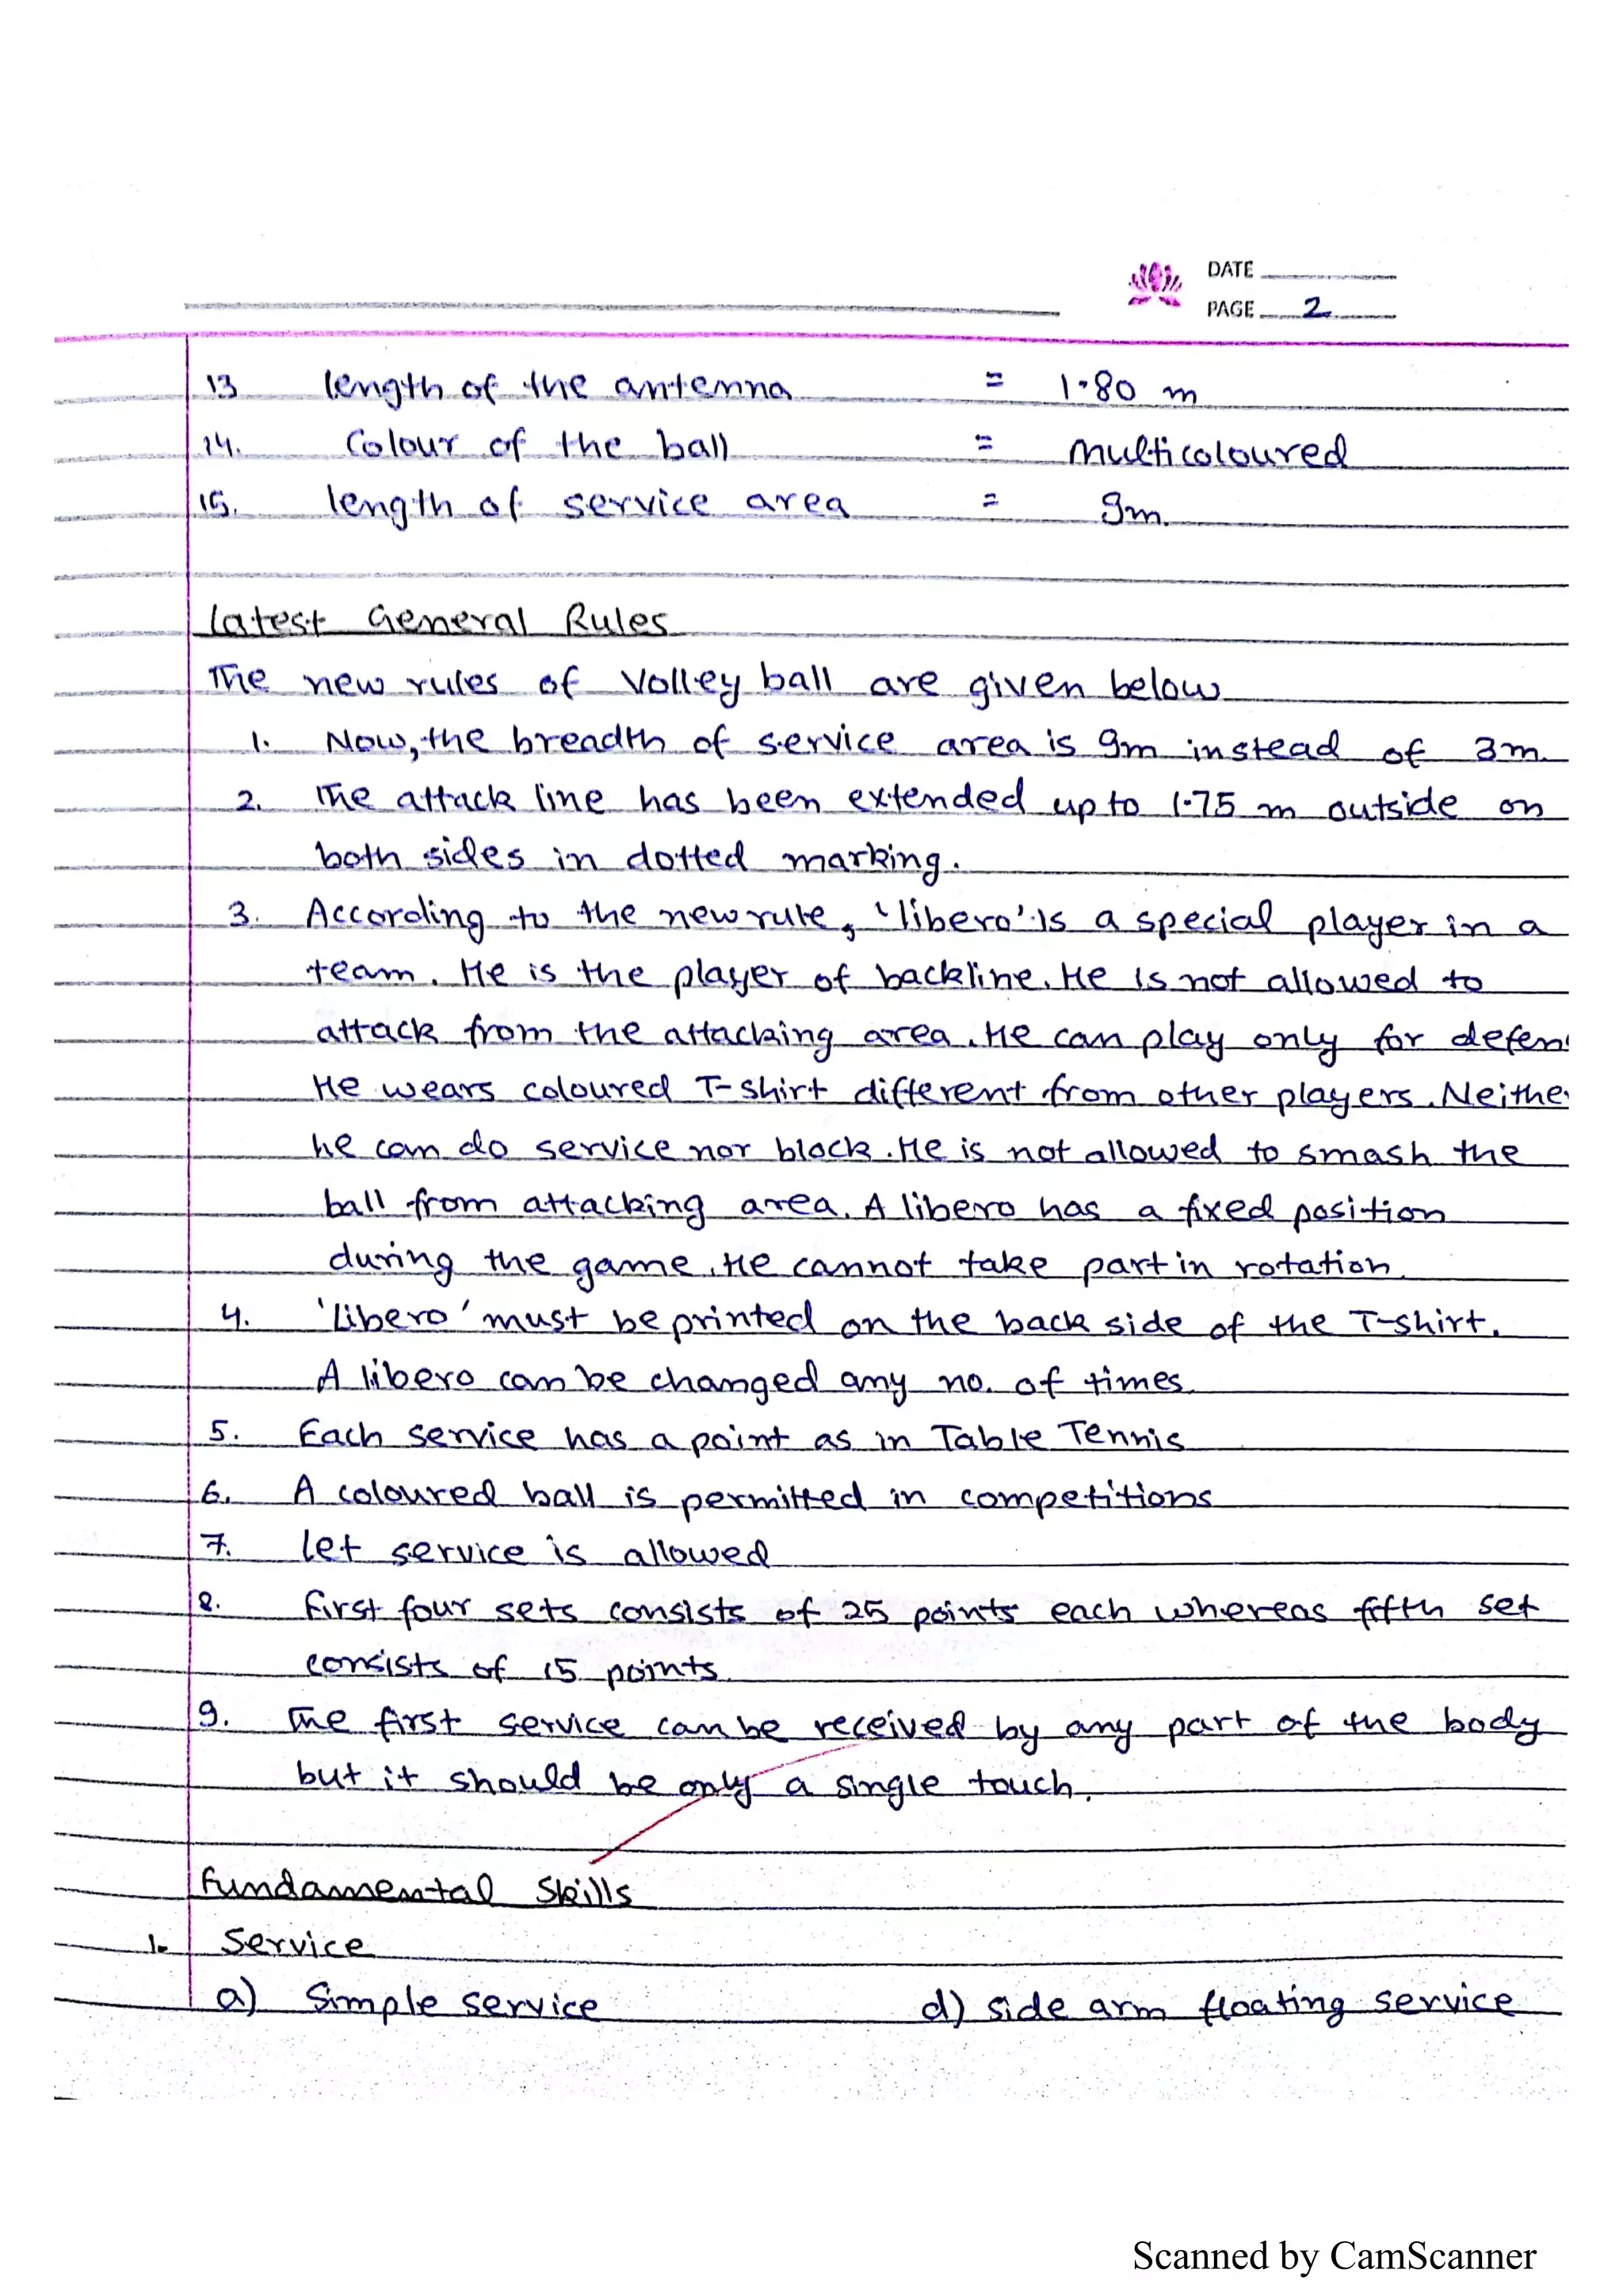 DATE
PAGE 2
13 length of the antenna = 1.80 m
14. Colour of the ball = Multicoloured
15. length of service area = 9m.
Latest General Rules
The new rules of Volley ball are given below
1. Now, the breadth of service area is 9m instead of 3m.
2. The attack line has been extended up to 1.75 m outside on
both sides in dotted marking.
3. According to the new rule, 'libero' is a special player in a
team. He is the player of backline. He is not allowed to
attack from the attacking area. He can play only for defen
He wears coloured T-shirt different from other players. Neithe
he can do service nor block. He is not allowed to smash the
ball from attacking area. A libero has a fixed position
during the game. He cannot take part in rotation.
4. 'Libero' must be printed on the back side of the T-shirt.
A libero can be changed any no. of times.
5. Each service has a point as in Table Tennis
6. A coloured ball is permitted in competitions
7. let service is allowed
8. First four sets consists of 25 points each whereas fifth set
consists of 15 points.
9. The first service can be received by any part of the body
but it should be only a single touch.
Fundamental Skills
1. Service
a) Simple service d) side arm floating service
Scanned by CamScanner